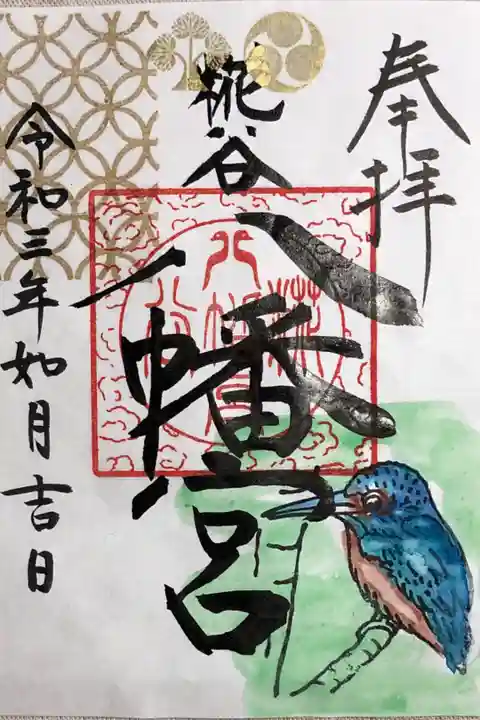 奉拝
椛谷
八幡宮
令和三年如月吉日